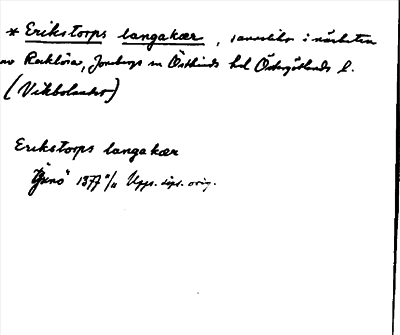 * Erikstorps langakær, sannolikt i närheten
av Recklösa, Jonsbergs sn Östkinds hd Östergötlands l.
(Vikbolandet)
Erikstorps langakær
1377 Upps. dipl. orig.